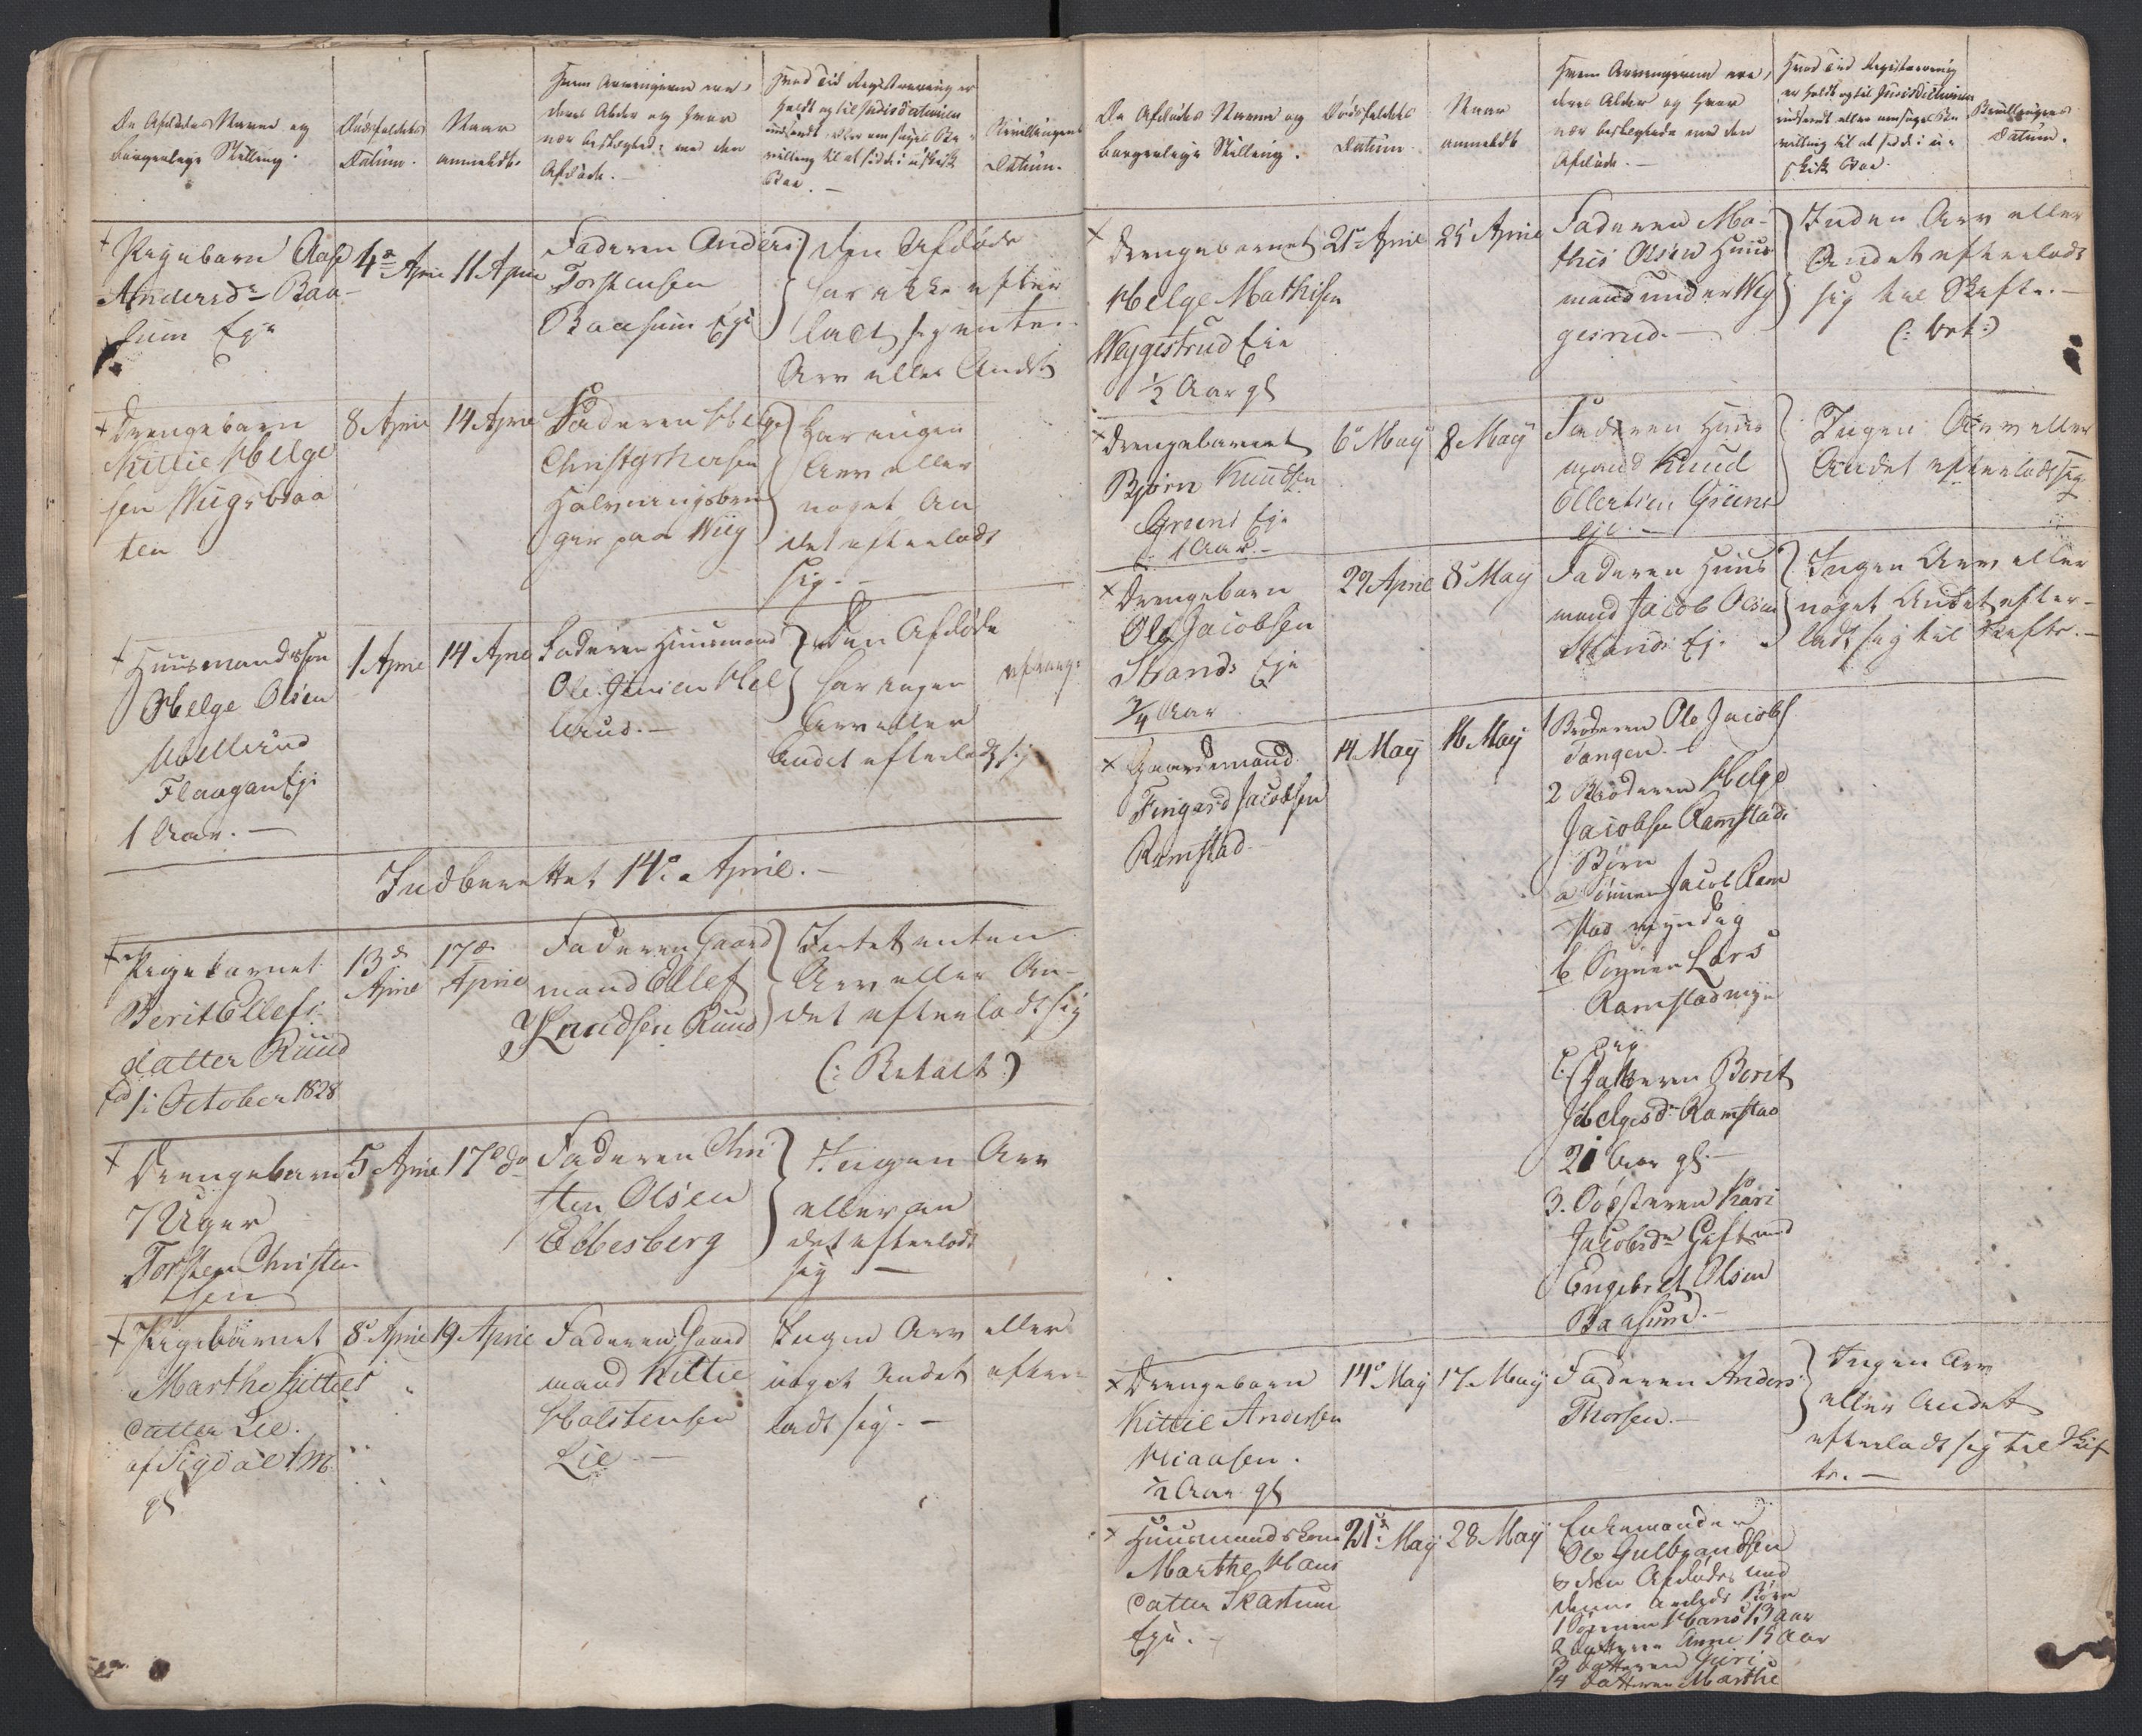 De Afdødes Navne og
borgerlige Stilling.
Dødsfaldets
Datum.
Naar
anmeldt.
Hvem Arvingerne ere,
deres Alder og hvor
nær beslægtede med den
Afdøde.
Hvad Tid Registrering er
holdt og til Jurisdictionen
indsendt eller ansøgt Be-
villing til at sidde i uskiftet
Boe.
Bevillingens
Datum.
+ Pigebarn Aase
Andersdr Baa-
sum Eje
4de April
11 April
Faderen Anders
Torstensen
Baasum Eje
Den Afdøde
har ikke efter
ladt sig enten
Arv eller Andet
+ Drengebarn
Kittil Helge
sen Wiigsbraa
ten
8 April
14 April
Faderen Helge
Christophersen
paa Wiig
Har ingen
Arv eller
noget An
det efterladt
sig.-
+ Huusmandssøn
Helge Olsen
Møllerud
Flaagan Eje
1 Aar.-
1 April
14 April
Faderen Huusmand
Ole Jensen Møl
lerud.-
Den Afdøde
har ingen
Arv eller
Andet efterladt sig
Indberettet 14de April.-
+ Pigebarnet
Berit Ellefs
datter Ruud
fød 1. October 1828
13de
April
17de
April
Faderen Gaard
mand Ellef
Knudsen Ruud
Intet enten
Arv eller An-
det efterladt sig
(: Betalt :)
+ Drengebarn
7 Uger
Torsten Christen
sen
5 April
17de do
Faderen Chri
sten Olsen
Ebbesberg
Ingen Arv
eller an
det efterladt
sig -
+ Pigebarnet
Marthe Kittels
datter Lie.
af Sigdal
gl
8de April
19 April
Faderen Gaard
mand Kittil
Holstensen
Lie.-
Ingen Arv eller
noget Andet efter-
ladt sig.-
De Afdødes Navne og
borgerlige Stilling.
Dødsfaldets
Datum
Naar
anmeldt
Hvem Arvingerne ere,
deres Alder og hvor
nær beslægtede med den
Afdøde.-
Hvad Tid Registrering
er holdt og til Jurisdictionen
indsendt eller ansøgt Be-
villing til at sidde i u-
skiftet Boe.
Bevillingens
Datum.
+ Drengebarnet
Helge Mathisen
Weggestrud Eie
1/2 Aar gl
21de April
25 April
Faderen Ma-
this Olsen Huus
mand under Weg
gesrud.
Inden Arv eller
Andet efterladt
sig til Skifte.-
(: bet :)
+ Drengebarnet
Bjørn Knudsen
Greens Eje
1 Aar.-
6te May
8 May
Faderen Huus
mand Knud
Ellertsen Greens
Eje.-
Ingen Arv eller
Andet efterladt sig
+ Drengebarn
Ole Jacobsen
Strands Eje
3/4 Aar
29 April
8de May
Faderen Huus
mand Jacob Olsen
Strands Ej.
Ingen Arv eller
noget Andet efter-
ladt sig til Skifte.-
+ Gaardemand
Fingard Jacobsen
Ramstad.
14 May
16 May
1 Broderen Ole Jacobs
Tangen.-
2 Broderen Helge
Jacobsen Ramstads
Børn
a Sønnen Jacob Ram
stad myndig
b Sønnen Lars
Ramstad myn
dig
c. Datteren Berit
Helgesdr Ramstad
21 Aar gl.-
3. Søsteren Kari
Jacobsdr Gift med
Engebret Olsen
Baasum.-
+ Drengebarn
Kittil Andersen
1/2 Aar gl
14de May
17 May
Faderen Anders
Thorsen.-
Ingen Arv
eller Andet
efterladt sig til Skif
te.-
+ Huusmandskone
Marthe Hans
datter Skartum
Eje.-
21de May
28 May
Enkemanden
Ole Gulbrandsen
den Afdødes med
denne avlede Børn
1 Sønnen Hans 13 Aar
2 Datteren Anne 15 Aar
3 Datteren Guri
4 Datteren Marthe